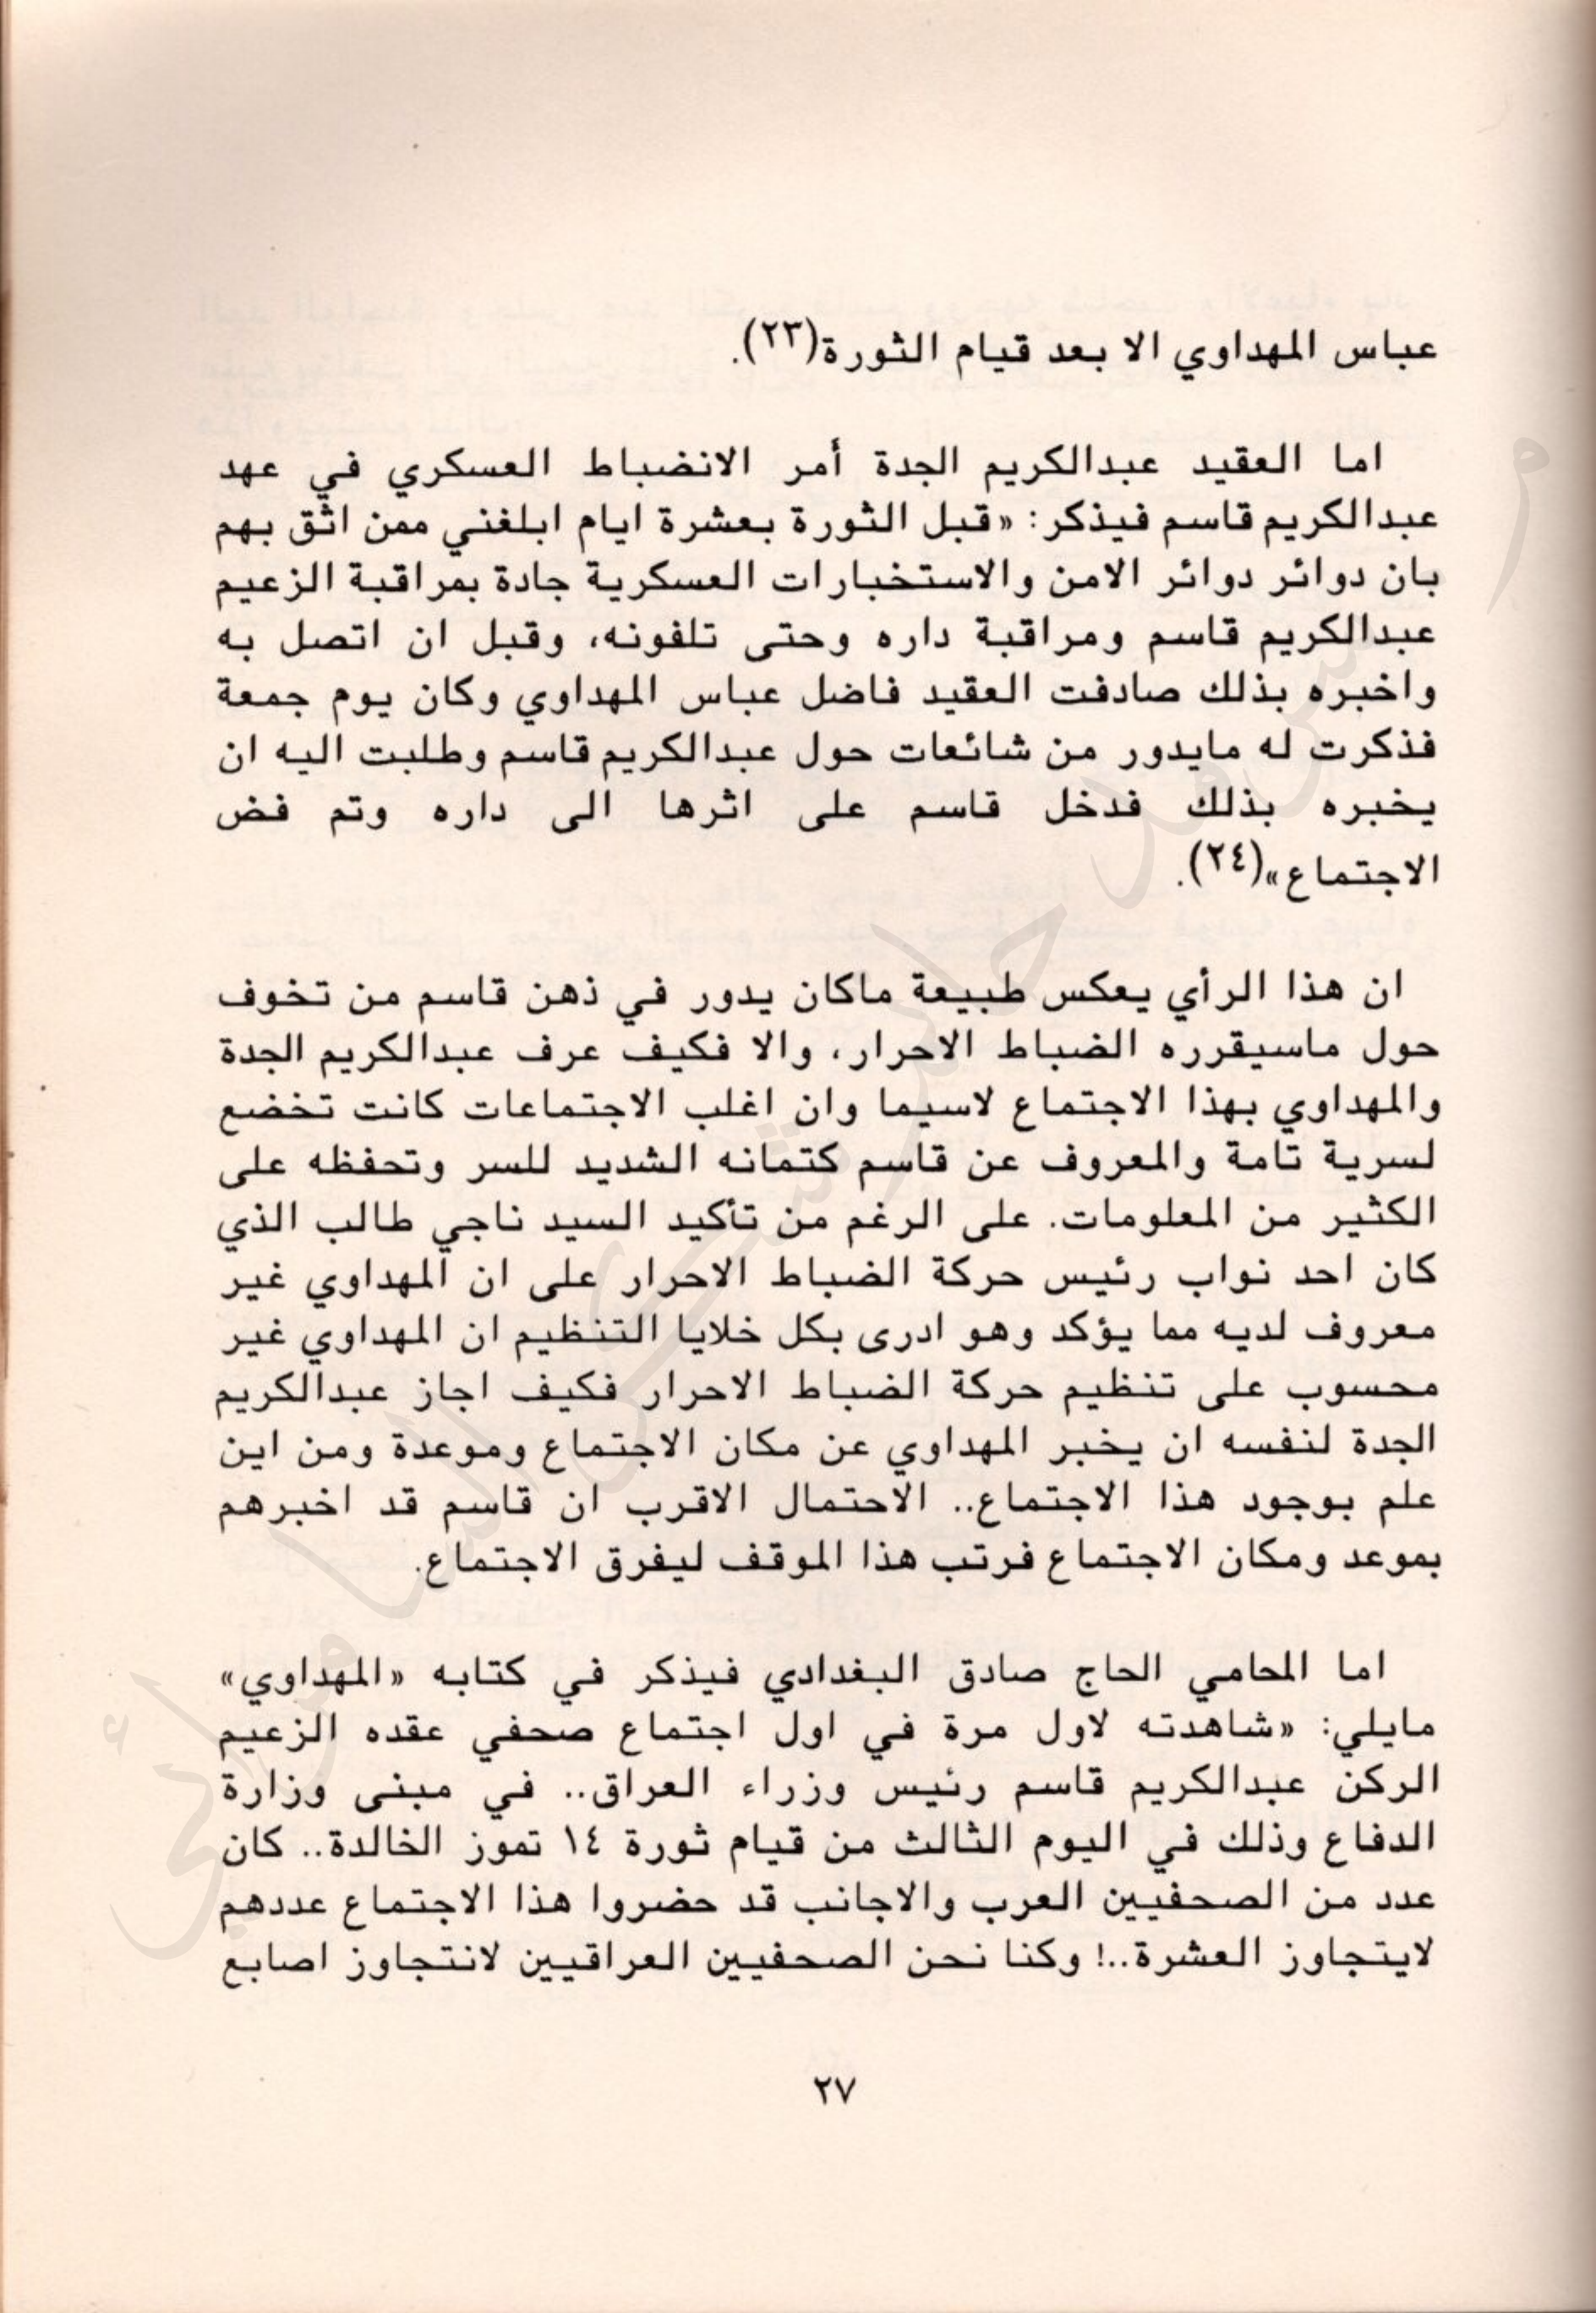 عباس المهداوي الا بعد قيام الثورة(٢٣).
اما العقيد عبدالكريم الجدة أمر الانضباط العسكري في عهد
عبدالكريم قاسم فيذكر: «قبل الثورة بعشرة ايام ابلغني ممن اثق بهم
بان دوائر دوائر الامن والاستخبارات العسكرية جادة بمراقبة الزعيم
عبدالكريم قاسم ومراقبة داره وحتى تلفونه، وقبل ان اتصل به
واخبره بذلك صادفت العقيد فاضل عباس المهداوي وكان يوم جمعة
فذكرت له مايدور من شائعات حول عبدالكريم قاسم وطلبت اليه ان
يخبره بذلك فدخل قاسم على اثرها الى داره وتم فض
الاجتماع»(٢٤).
ان هذا الرأي يعكس طبيعة ماكان يدور في ذهن قاسم من تخوف
حول ماسيقرره الضباط الاحرار، والا فكيف عرف عبدالكريم الجدة
والمهداوي بهذا الاجتماع لاسيما وان اغلب الاجتماعات كانت تخضع
لسرية تامة والمعروف عن قاسم كتمانه الشديد للسر وتحفظه على
الكثير من المعلومات. على الرغم من تأكيد السيد ناجي طالب الذي
كان احد نواب رئيس حركة الضباط الاحرار على ان المهداوي غير
معروف لديه مما يؤكد وهو ادرى بكل خلايا التنظيم ان المهداوي غير
محسوب على تنظيم حركة الضباط الاحرار فكيف اجاز عبدالكريم
الجدة لنفسه ان يخبر المهداوي عن مكان الاجتماع وموعدة ومن اين
علم بوجود هذا الاجتماع.. الاحتمال الاقرب ان قاسم قد اخبرهم
بموعد ومكان الاجتماع فرتب هذا الموقف ليفرق الاجتماع.
اما المحامي الحاج صادق البغدادي فيذكر في كتابه «المهداوي»
مايلي: «شاهدته لاول مرة في اول اجتماع صحفي عقده الزعيم
الركن عبدالكريم قاسم رئيس وزراء العراق.. في مبنى وزارة
الدفاع وذلك في اليوم الثالث من قيام ثورة ١٤ تموز الخالدة.. كان
عدد من الصحفيين العرب والاجانب قد حضروا هذا الاجتماع عددهم
لايتجاوز العشرة..! وكنا نحن الصحفيين العراقيين لانتجاوز اصابع
٢٧